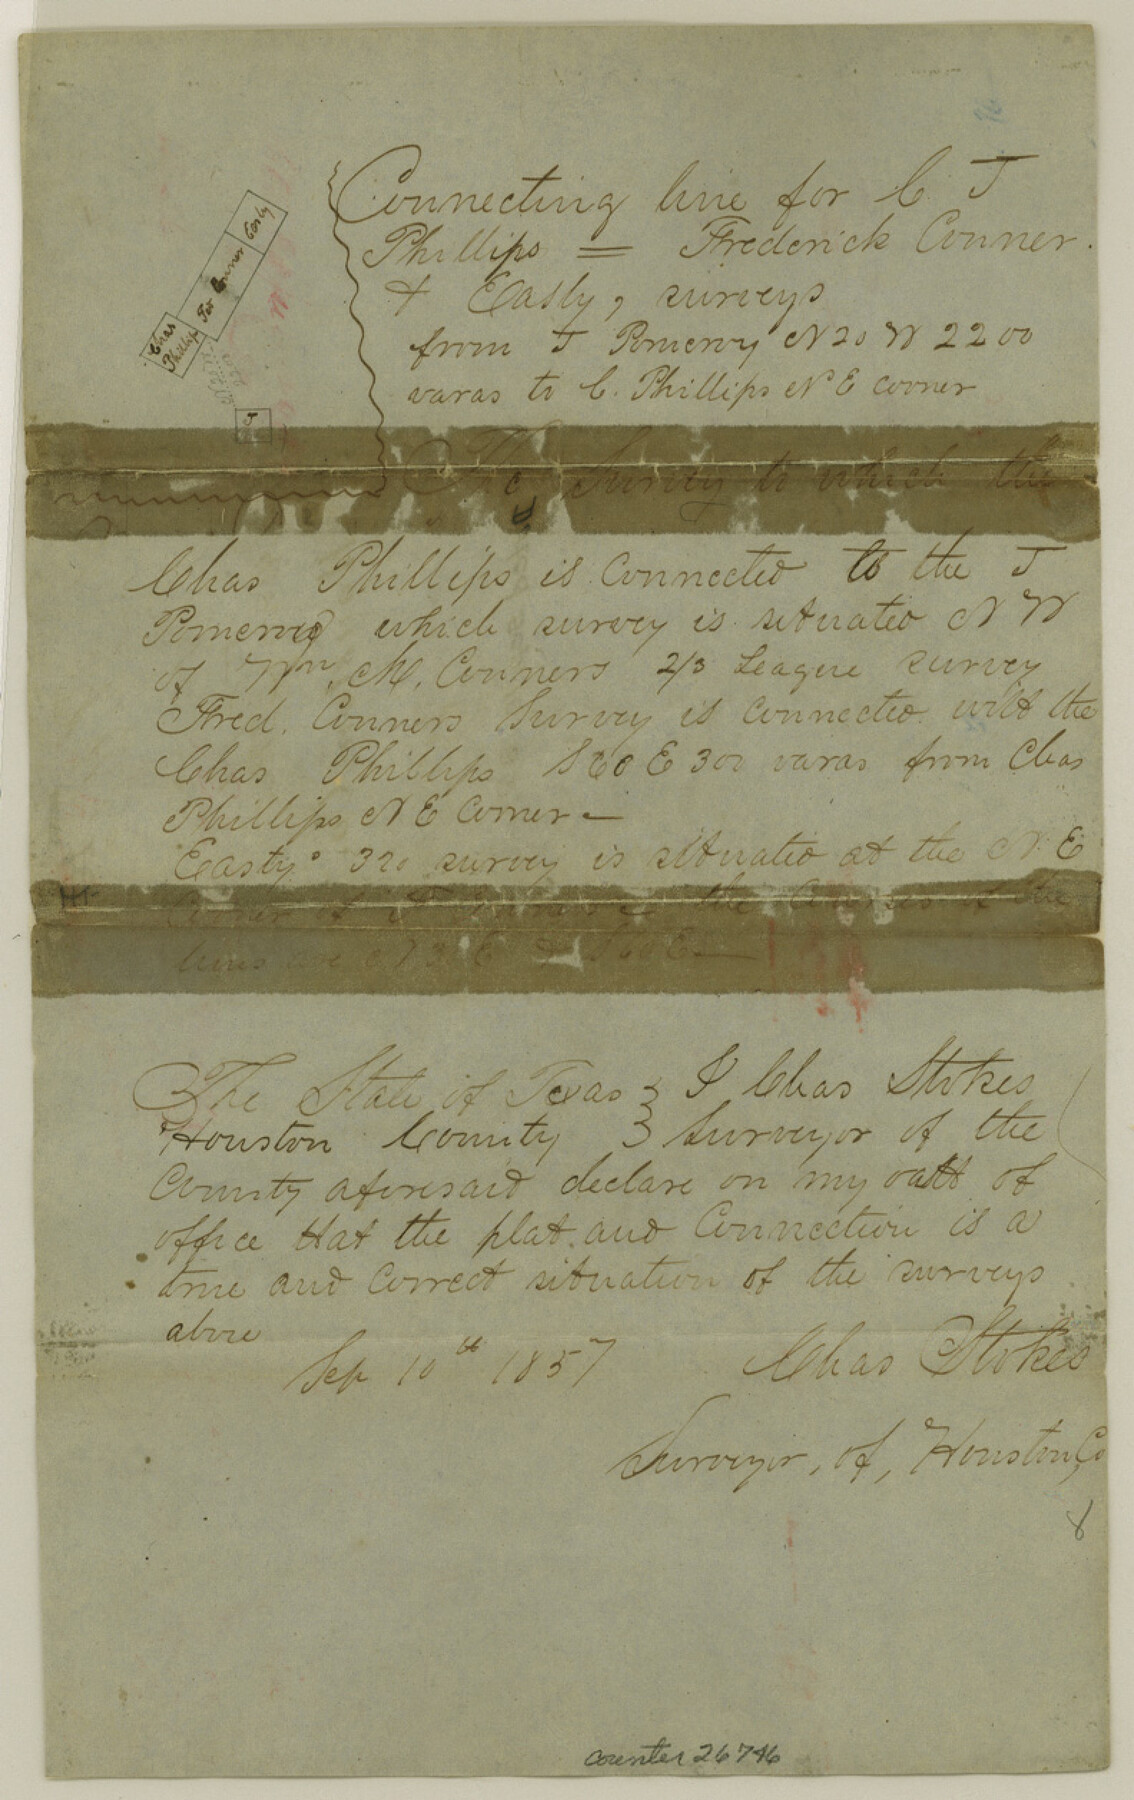 Connecting line for C. J
Phillips = Frederick Conner.
& Easly, surveys
from J Pomeroy N 20 W 2200
varas to C. Phillips N E corner
Easly
Fred Conner
Chas
Phillips
J
The Survey to which the
Chas Phillips is Connected to the J
Pomeroy which survey is situated N W
of Wm. M. Conners 2/3 League survey
Fred. Conners Survey is connected with the
Chas Phillips S 60 E 300 varas from Chas
Phillips N E Corner —
Easly 320 survey is situated at the N. E
Corner of F Conners the Courses of the
lines are N 30 E & S 60 E —
The State of Texas } I Chas Stokes
Houston County } Surveyor of the
County aforesaid declare on my oath of
office that the plat and Connection is a
true and correct situation of the surveys
above
Sep 10th 1857 Chas Stokes
Surveyor, of, Houston, Co
counter 26746